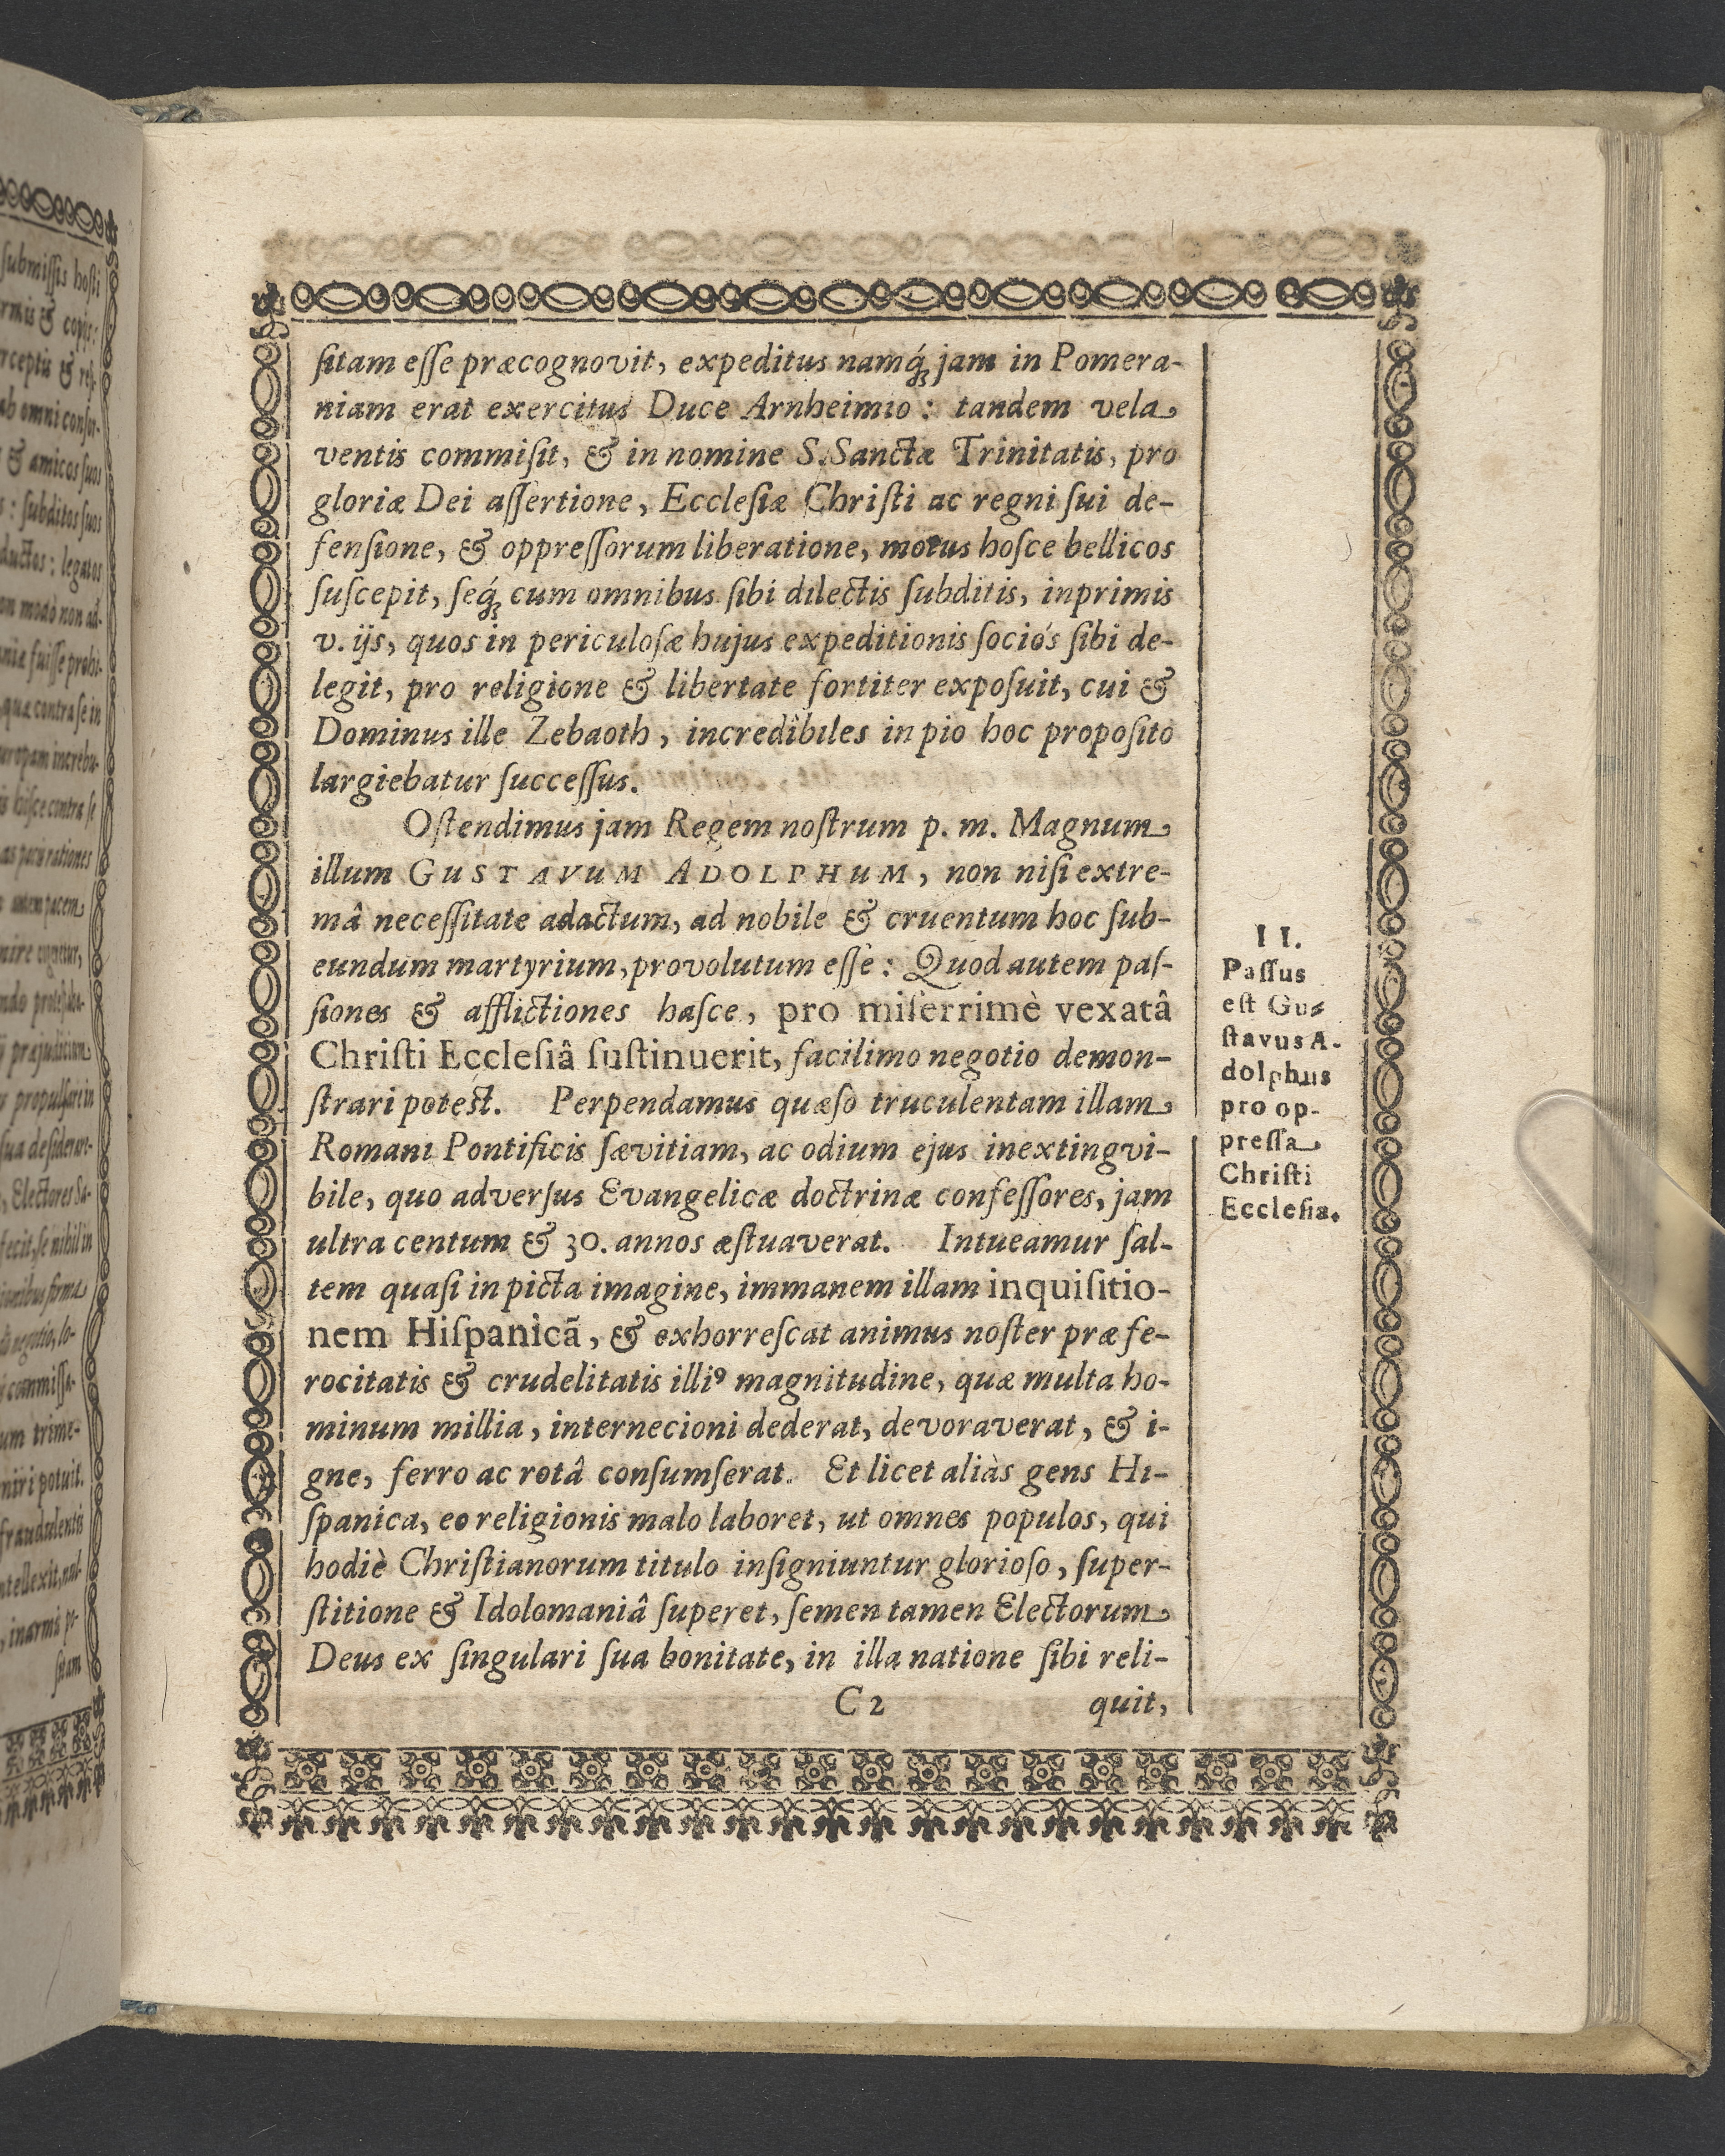 ſitam eſſe præcognovit, expeditus namq́ꝫ jam in Pomera-
niam erat exercitus Duce Arnheimio: tandem vela
ventis commiſit, & in nomine S. Sanctæ Trinitatis, pro
gloriæ Dei aſſertione, Eccleſiæ Chriſti ac regni ſui de-
fenſione, & oppreſſorum liberatione, motus hoſce bellicos
ſuſcepit, ſeq́ꝫ cum omnibus ſibi dilectis ſubditis, inprimis
v. ijs, quos in periculoſæ hujus expeditionis ſociós ſibi de-
legit, pro religione & libertate fortiter expoſuit, cui &
Dominus ille Zebaoth, incredibiles in pio hoc propoſito
largiebatur ſucceſſus.
Oſtendimus jam Regem noſtrum p. m. Magnum
illum GUSTAVUM ADOLPHUM, non niſi extre-
mâ neceſſitate adactum, ad nobile & cruentum hoc ſub-
eundum martyrium, provolutum eſſe: Quod autem paſ-
ſiones & afflictiones haſce, pro miſerrimè vexatâ
Chriſti Eccleſiâ ſuſtinuerit, facilimo negotio demon-
ſtrari potest. Perpendamus quæſo truculentam illam
Romani Pontificis ſævitiam, ac odium ejus inextingvi-
bile, quo adverſus Evangelicæ doctrinæ confeſſores, jam
ultra centum & 30. annos æſtuaverat. Intueamur ſal-
tem quaſi in picta imagine, immanem illam inquiſitio-
nem Hiſpanicã, & exhorreſcat animus noſter præ fe-
rocitatis & crudelitatis illiꝰ magnitudine, quæ multa ho-
minum millia, internecioni dederat, devoraverat, & i-
gne, ferro ac rotâ conſumſerat. Et licet aliàs gens Hi-
ſpanica, eo religionis malo laboret, ut omnes populos, qui
hodiè Chriſtianorum titulo inſigniuntur glorioſo, ſuper-
ſtitione & Idolomaniâ ſuperet, ſemen tamen Electorum
Deus ex ſingulari ſua bonitate, in illa natione ſibi reli-
C 2 quit,
II.
Paſſus
eſt Gu-
ſtavus A-
dolphus
pro op-
preſſa
Chriſti
Eccleſia.